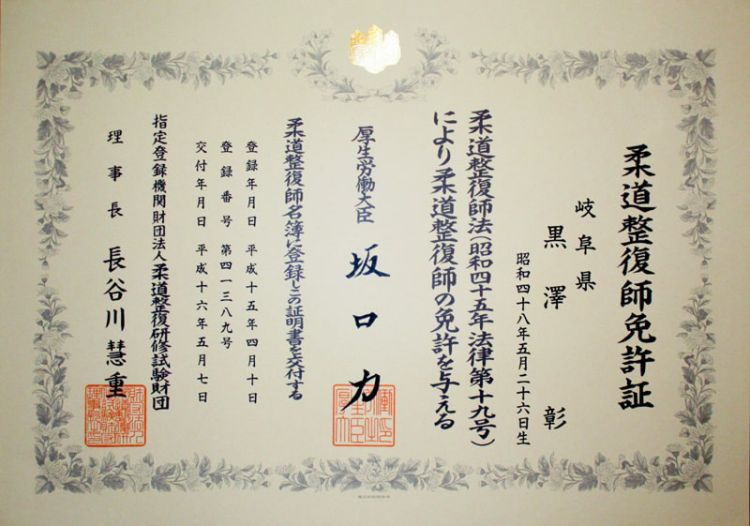 柔道整復師免許証
岐阜県
黒澤 彰
昭和四十八年五月二十六日生
柔道整復師法(昭和四十五年法律第十九号)
により柔道整復師の免許を与える
厚生労働大臣 坂口力
柔道整復師名簿に登録しこの証明書を交付する
登録年月日 平成十五年四月十日
登録番号 第四一三八九号
交付年月日 平成十六年五月七日
指定登録機関財団法人柔道整復研修試験財団
理事長 長谷川慧重